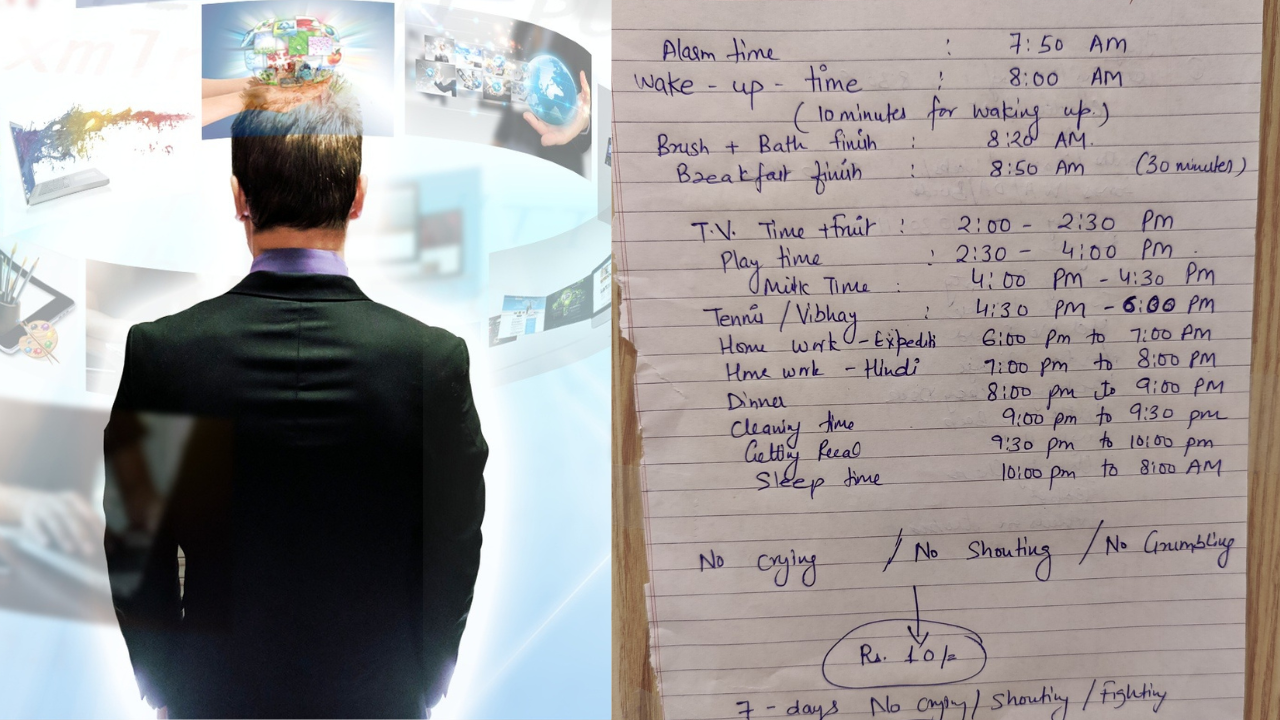 xm7r
Alarm time : 7:50 AM
Wake - up - time : 8:00 AM
( 10 minutes for waking up.)
Brush + Bath finish : 8:20 AM.
Breakfast finish : 8:50 AM (30 minutes)
T.V. Time + fruit : 2:00 - 2:30 Pm
Play time : 2:30 - 4:00 PM
Milk Time : 4:00 PM - 4:30 Pm
Tennis / Vibhay : 4:30 PM - 6:00 PM
Home work - 6:00 Pm to 7:00 PM
Home work - Hindi 7:00 pm to 8:00 PM
Dinner 8:00 pm to 9:00 PM
Cleaning time 9:00 pm to 9:30 pm
Getting 9:30 pm to 10:00 pm
Sleep time 10:00 pm to 8:00 AM
No Crying / No Shouting / No Grumbling
Rs. 10/=
7 - days No crying / Shouting / Fighting